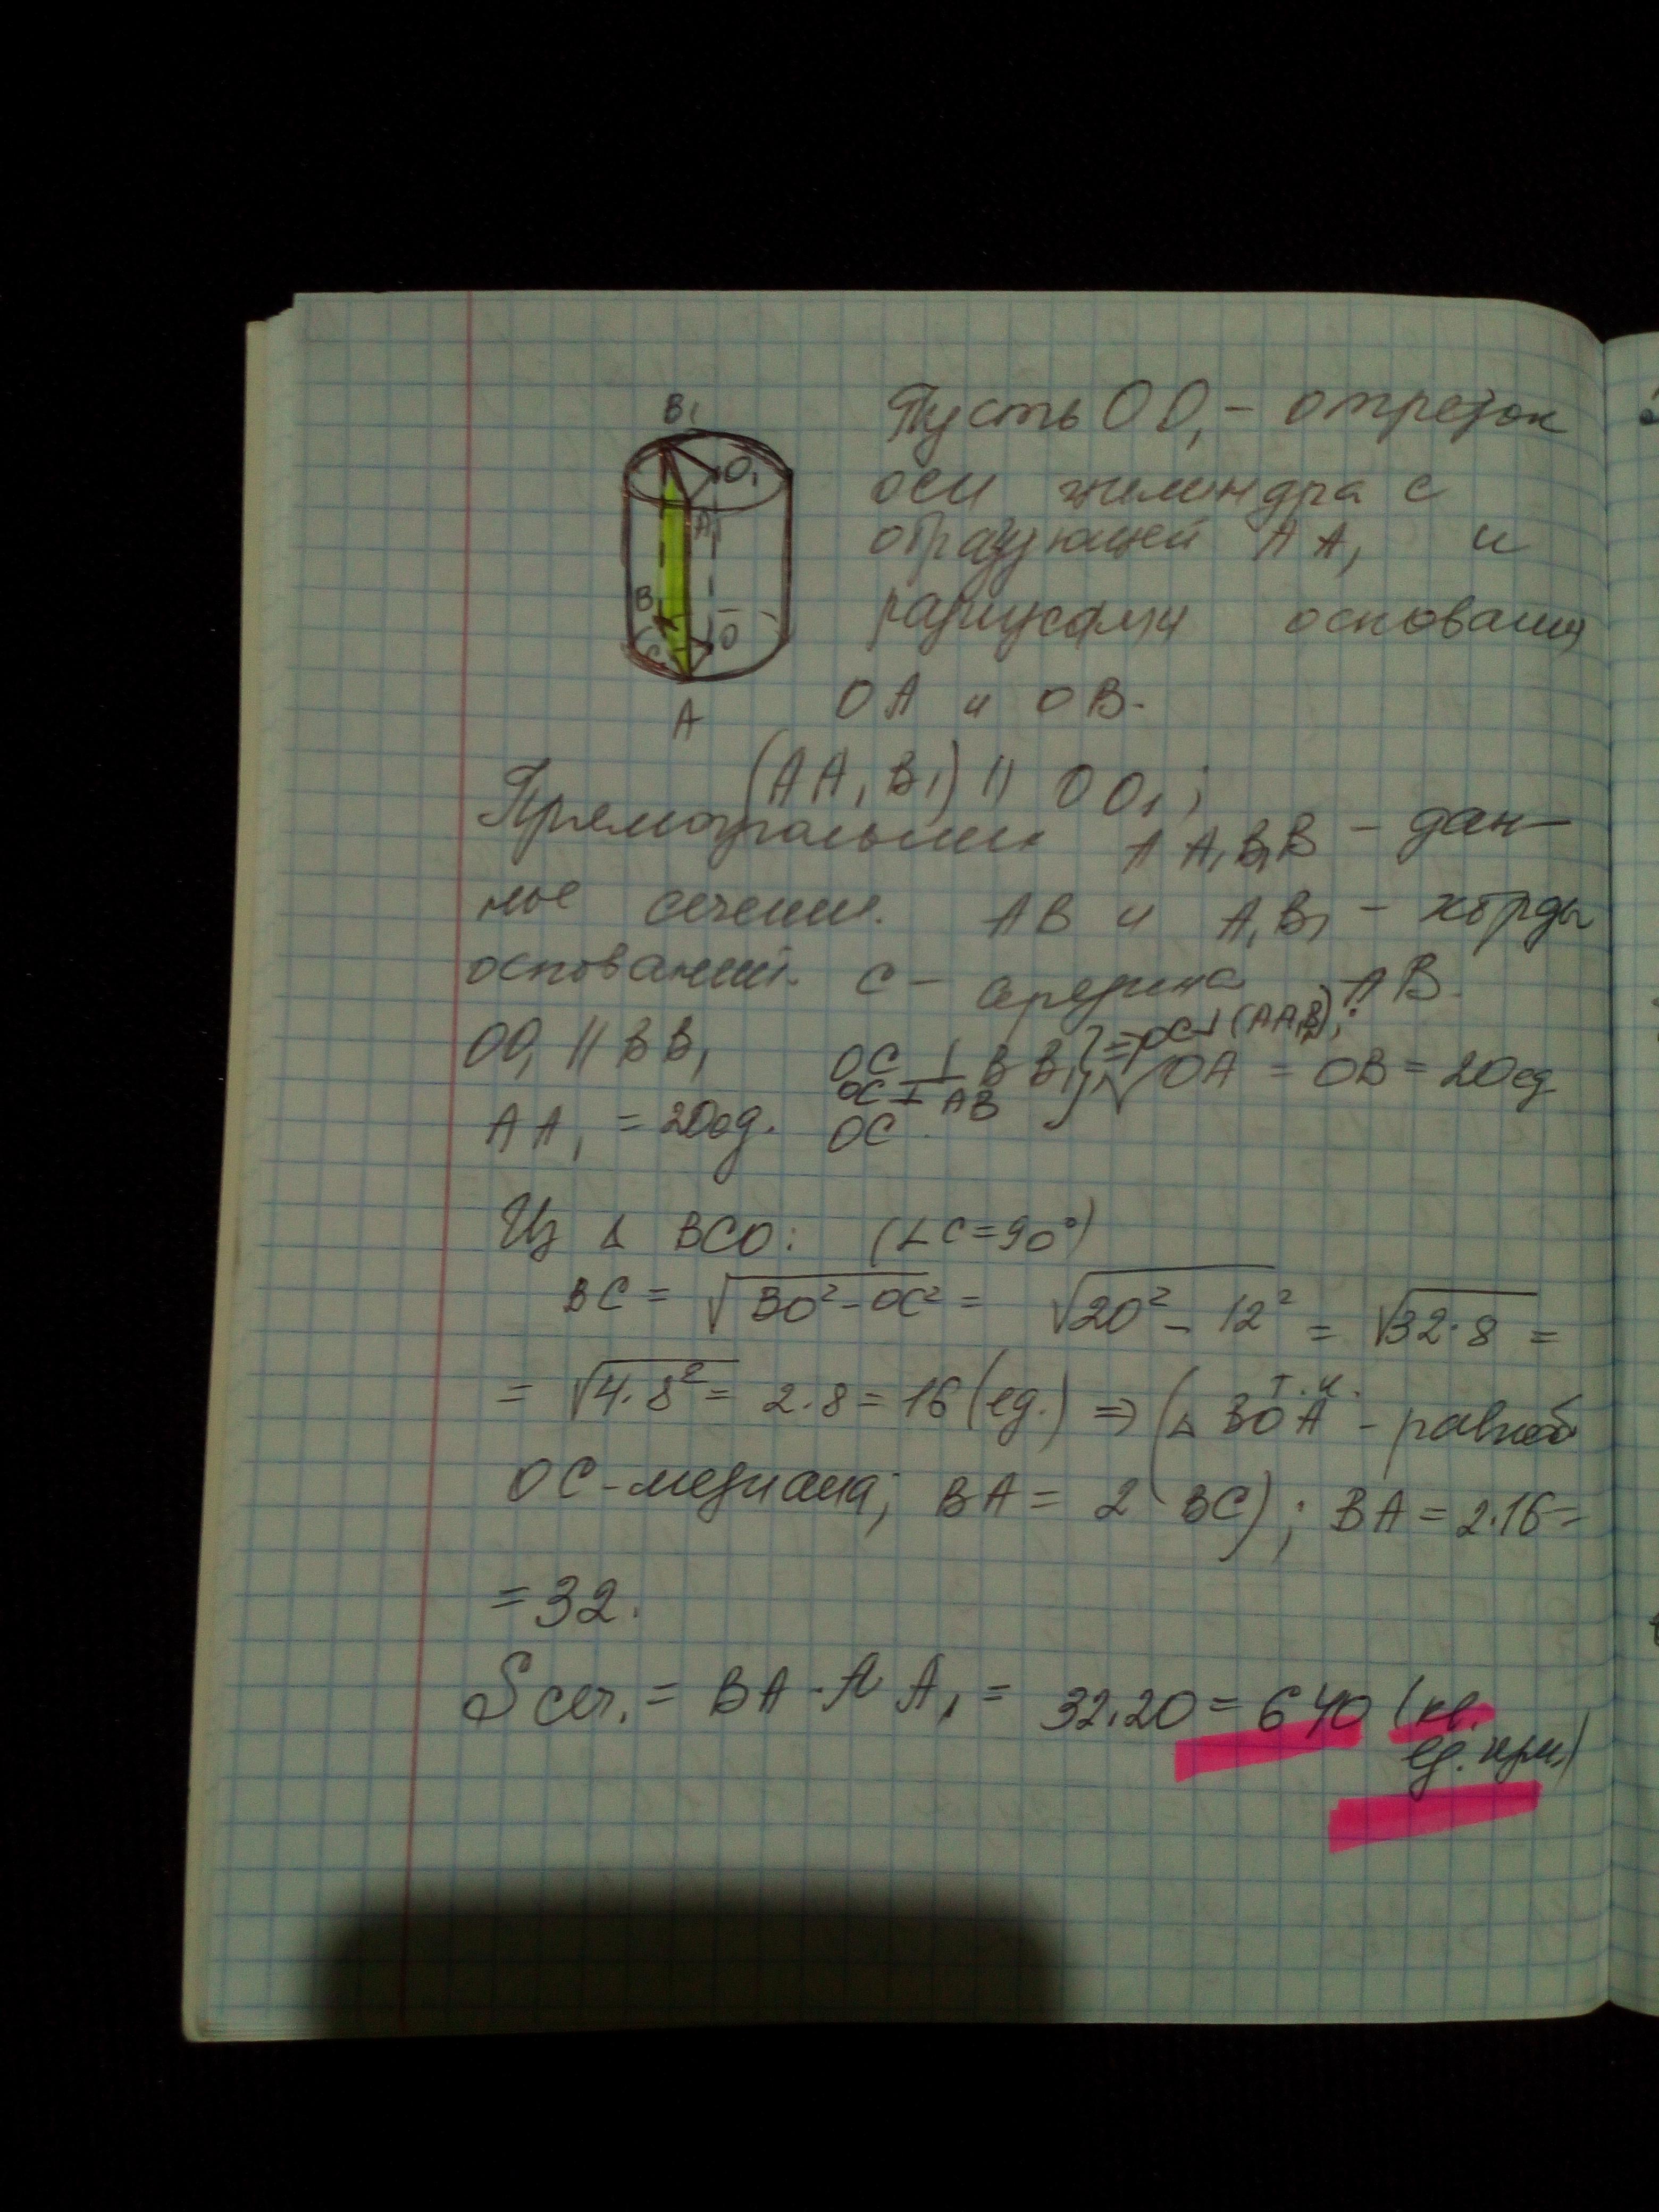 B₁
O₁
A₁
B
C
O
A
Пусть OO₁ – отрезок
оси цилиндра с
образующей AA₁ и
радиусами основания
OA и OB.
(AA₁B₁) || OO₁;
Прямоугольник AA₁B₁B – дан-
ное сечение. AB и A₁B₁ – хорды
оснований. C – середина AB.
OO₁ || BB₁ OC ⊥ BB₁ } => OC ⊥ (AA₁B₁); OA = OB = 20 ед
OC ⊥ AB
AA₁ = 20 ед. OC
Из Δ BCO: (∠C=90°)
BC = √(BO²-OC²) = √(20² - 12²) = √(32·8) =
= √(4·8²) = 2·8 = 16 (ед.) => (т.к. Δ BOA – равноб
OC-медиана; BA = 2 BC); BA = 2·16=
=32.
Sсеч. = BA·AA₁ = 32·20 = 640 (кв.
ед. изм.)